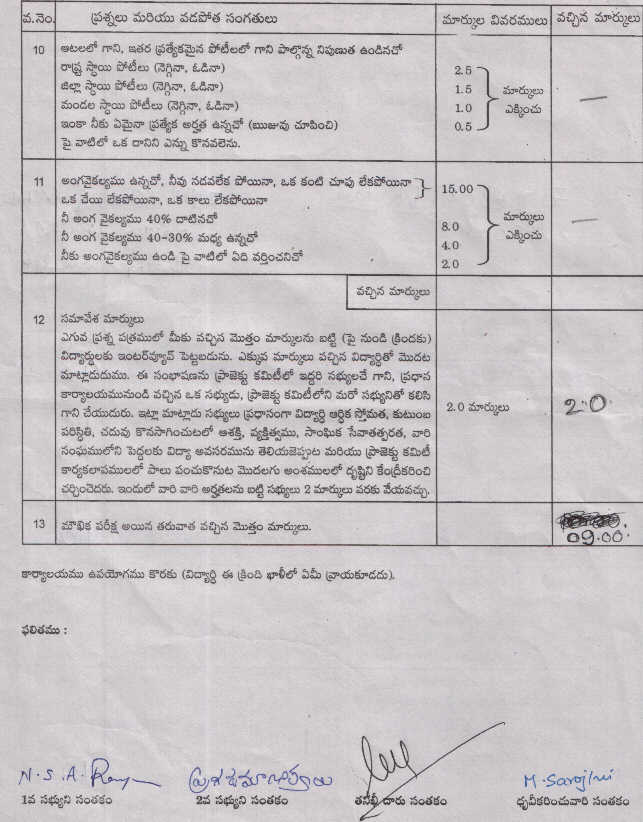 వ.నెం. ప్రశ్నలు మరియు వడపోత సంగతులు మార్కుల వివరములు వచ్చిన మార్కులు
10 ఆటలలో గాని, ఇతర ప్రత్యేకమైన పోటీలలో గాని పాల్గొన్న నిపుణుత ఉండినచో
రాష్ట్ర స్థాయి పోటీలు (నెగ్గినా, ఓడినా) 2.5
జిల్లా స్థాయి పోటీలు (నెగ్గినా, ఓడినా) 1.5 మార్కులు
మండల స్థాయి పోటీలు (నెగ్గినా, ఓడినా) 1.0 ఎక్కించు —
ఇంకా నీకు ఏమైనా ప్రత్యేక అర్హత ఉన్నచో (ఋజువు చూపించి) 0.5
పై వాటిలో ఒక దానిని ఎన్ను కొనవలెను.
11 అంగవైకల్యము ఉన్నచో, నీవు నడవలేక పోయినా, ఒక కంటి చూపు లేకపోయినా 15.00
ఒక చేయి లేకపోయినా, ఒక కాలు లేకపోయినా
నీ అంగ వైకల్యము 40% దాటినచో 8.0 మార్కులు —
నీ అంగ వైకల్యము 40-30% మధ్య ఉన్నచో 4.0 ఎక్కించు
నీకు అంగవైకల్యము ఉండి పై వాటిలో ఏది వర్తించనిచో 2.0
వచ్చిన మార్కులు
12 సమావేశ మార్కులు
ఎగువ ప్రశ్న పత్రములో మీకు వచ్చిన మొత్తం మార్కులను బట్టి (పై నుండి క్రిందకు)
విద్యార్థులకు ఇంటర్‌వ్యూవ్ పెట్టబడును. ఎక్కువ మార్కులు వచ్చిన విద్యార్థితో మొదట
మాట్లాడుదుము. ఈ సంభాషణను ప్రాజెక్టు కమిటీలో ఇద్దరి సభ్యులచే గాని, ప్రధాన
కార్యాలయమునుండి వచ్చిన ఒక సభ్యుడు, ప్రాజెక్టు కమిటీలోని మరో సభ్యునితో కలిసి
గాని చేయుదురు. ఇట్లా మాట్లాడు సభ్యులు ప్రధానంగా విద్యార్థి ఆర్థిక స్తోమత, కుటుంబ 2.0 మార్కులు 2.0
పరిస్థితి, చదువు కొనసాగించుటలో ఆశక్తి, వ్యక్తిత్వము, సాంఘిక సేవాతత్పరత, వారి
సంఘములోని పెద్దలకు విద్యా అవసరమును తెలియజెప్పుట మరియు ప్రాజెక్టు కమిటీ
కార్యకలాపములలో పాలు పంచుకొనుట మొదలగు అంశములలో దృష్టిని కేంద్రీకరించి
చర్చించెదరు. ఇందులో వారి వారి అర్హతలను బట్టి సభ్యులు 2 మార్కులు వరకు వేయవచ్చు.
13 మౌఖిక పరీక్ష అయిన తరువాత వచ్చిన మొత్తం మార్కులు. 09.00
కార్యాలయము ఉపయోగము కొరకు (విద్యార్థి ఈ క్రింది ఖాళీలో ఏమీ వ్రాయకూడదు).
ఫలితము :
N.S.A. M. Sarojini
1వ సభ్యుని సంతకం 2వ సభ్యుని సంతకం తనిఖీ దారు సంతకం ధృవీకరించువారి సంతకం